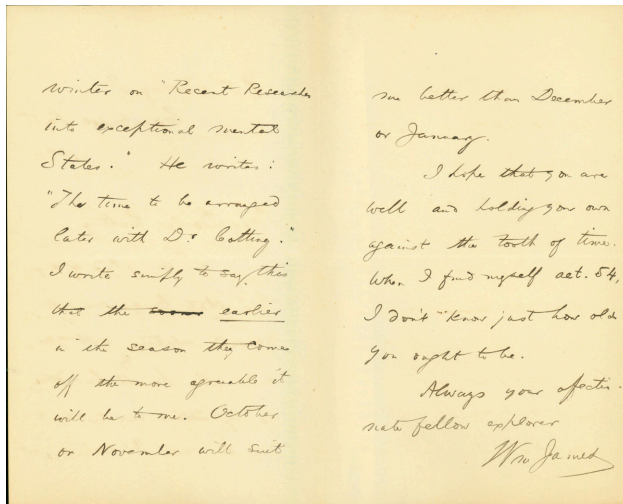 winter on "Recent Researches
into exceptional mental
States." He writes:
"The time to be arranged
later with Dr. Cotting."
I write simply to say this
that the earlier
in the season they come
off the more agreeable it
will be to me. October
or November will suit
me better than December
or January.
I hope that you are
well and holding your own
against the tooth of time.
When I find myself aet. 54,
I don't know just how old
you ought to be.
Always your affectio-
nate fellow explorer
Wm James